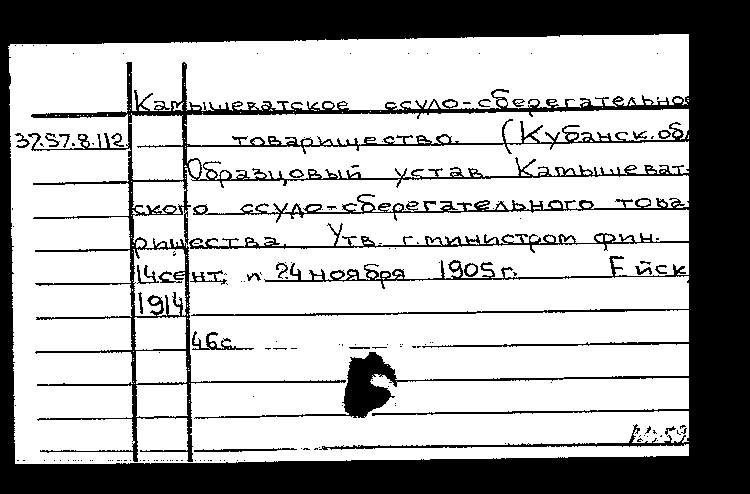 Камышеватское ссудо-сберегательное
37.57.8.112 товарищество. (Кубанск.обл
Образцовый устав Камышеват-
ского ссудо-сберегательного това-
рищества. Утв. г.министром фин.
14сент. и 24 ноября 1905г. Ейск,
1914
46с.